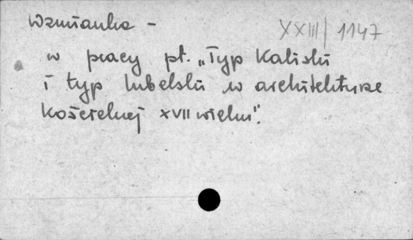 Wzmianka -
XXIII/1147
w pracy pt. „Typ Kaliski
i typ lubelski w architekturze
kościelnej XVII wieku".